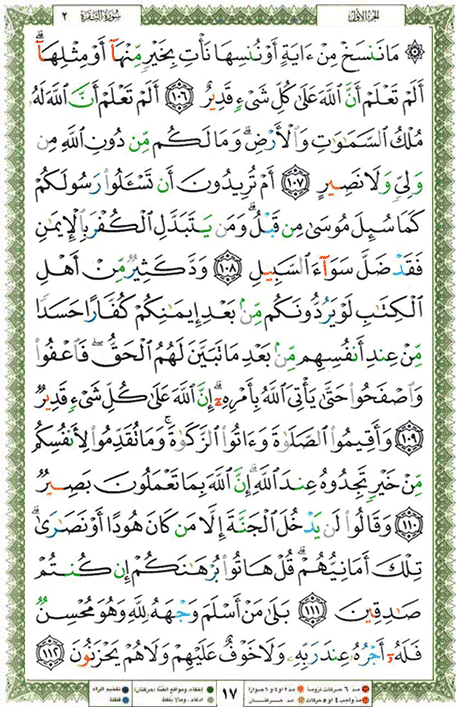 الجزء الأول
سورة البقرة
٢
۞ مَا نَنسَخْ مِنْ ءَايَةٍ أَوْ نُنسِهَا نَأْتِ بِخَيْرٍ مِّنْهَآ أَوْ مِثْلِهَآ ۗ
أَلَمْ تَعْلَمْ أَنَّ ٱللَّهَ عَلَىٰ كُلِّ شَىْءٍ قَدِيرٌ ﴿١٠٦﴾ أَلَمْ تَعْلَمْ أَنَّ ٱللَّهَ لَهُۥ
مُلْكُ ٱلسَّمَٰوَٰتِ وَٱلْأَرْضِ ۗ وَمَا لَكُم مِّن دُونِ ٱللَّهِ مِن
وَلِىٍّ وَلَا نَصِيرٍ ﴿١٠٧﴾ أَمْ تُرِيدُونَ أَن تَسْـَٔلُوا۟ رَسُولَكُمْ
كَمَا سُئِلَ مُوسَىٰ مِن قَبْلُ ۗ وَمَن يَتَبَدَّلِ ٱلْكُفْرَ بِٱلْإِيمَٰنِ
فَقَدْ ضَلَّ سَوَآءَ ٱلسَّبِيلِ ﴿١٠٨﴾ وَدَّ كَثِيرٌ مِّنْ أَهْلِ
ٱلْكِتَٰبِ لَوْ يَرُدُّونَكُم مِّنۢ بَعْدِ إِيمَٰنِكُمْ كُفَّارًا حَسَدًا
مِّنْ عِندِ أَنفُسِهِم مِّنۢ بَعْدِ مَا تَبَيَّنَ لَهُمُ ٱلْحَقُّ ۖ فَٱعْفُوا۟
وَٱصْفَحُوا۟ حَتَّىٰ يَأْتِىَ ٱللَّهُ بِأَمْرِهِۦٓ ۗ إِنَّ ٱللَّهَ عَلَىٰ كُلِّ شَىْءٍ قَدِيرٌ
﴿١٠٩﴾ وَأَقِيمُوا۟ ٱلصَّلَوٰةَ وَءَاتُوا۟ ٱلزَّكَوٰةَ ۚ وَمَا تُقَدِّمُوا۟ لِأَنفُسِكُم
مِّنْ خَيْرٍ تَجِدُوهُ عِندَ ٱللَّهِ ۗ إِنَّ ٱللَّهَ بِمَا تَعْمَلُونَ بَصِيرٌ
﴿١١٠﴾ وَقَالُوا۟ لَن يَدْخُلَ ٱلْجَنَّةَ إِلَّا مَن كَانَ هُودًا أَوْ نَصَٰرَىٰ ۗ
تِلْكَ أَمَانِيُّهُمْ ۗ قُلْ هَاتُوا۟ بُرْهَٰنَكُمْ إِن كُنتُمْ
صَٰدِقِينَ ﴿١١١﴾ بَلَىٰ مَنْ أَسْلَمَ وَجْهَهُۥ لِلَّهِ وَهُوَ مُحْسِنٌ
فَلَهُۥٓ أَجْرُهُۥ عِندَ رَبِّهِۦ وَلَا خَوْفٌ عَلَيْهِمْ وَلَا هُمْ يَحْزَنُونَ ﴿١١٢﴾
مد ٦ حركات لزوماً
مد ٢ أو ٤ أو ٦ جوازاً
مد واجب ٤ أو ٥ حركات
مد حركتان
١٧
إخفاء، ومواقع الغنة (حركتان)
إدغام، وما لا يلفظ
تفخيم الراء
قلقلة